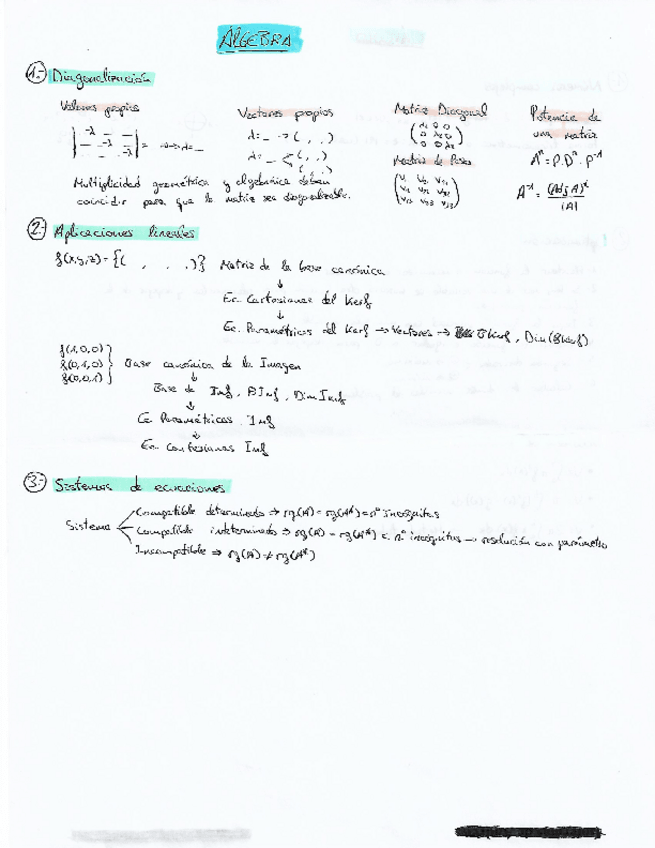 ÁLGEBRA
1.- Diagonalización
Valores propios
Vectores propios
Matriz Diagonal
Potencia de
una matriz
|-λ - -|
|- -λ -| = → λ = _
|- - -λ|
λ = _ → ( , , )
λ = _ < ( , , )
( , , )
(λ₁ 0 0)
(0 λ₂ 0)
(0 0 λ₃)
Matriz de Paso
Aⁿ = P.Dⁿ.P⁻¹
A⁻¹ = (Adj A)ᵗ / |A|
Multiplicidad geométrica y algebraica deben
coincidir para que la matriz sea diagonalizable.
2.- Aplicaciones lineales
f(x,y,z) = {( , , )} Matriz de la base canónica
↓
Ec. Cartesianas del Kerf
↓
Ec. Paramétricas del Kerf → Vectores → BKerf, Dim(BKerf)
f(1,0,0)
f(0,1,0) } Base canónica de la Imagen
f(0,0,1)
↓
Base de Imf, BImf, DimImf
↓
Ec Paramétricas Imf
↓
Ec. Cartesianas Imf
3.- Sistemas de ecuaciones
Compatible determinado ⇒ rg(A) = rg(A*) = nº incógnitas
Sistema
Compatible indeterminado ⇒ rg(A) = rg(A*) < nº incógnitas → resolución con parámetro
Incompatible ⇒ rg(A) ≠ rg(A*)